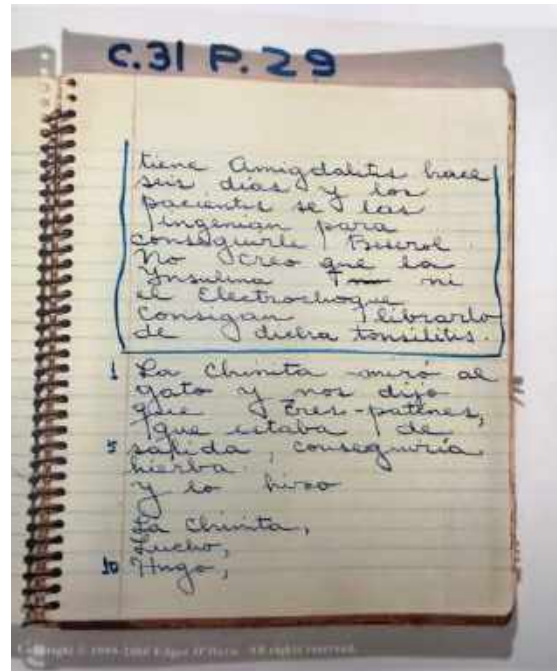 C.31 P.29
tiene Amigdalitis hace
seis días y los
pacientes se las
ingenian para
conseguirle
No creo que la
Ynsulina ni
el Electrochoque
consigan librarlo
de dicha tonsilitis.
1 La Chinita miró al
gato y nos dijo
que Tres-patines,
que estaba de
5 salida, conseguiría
hierba.
y lo hizo
La Chinita,
Lucho,
10 Hugo,